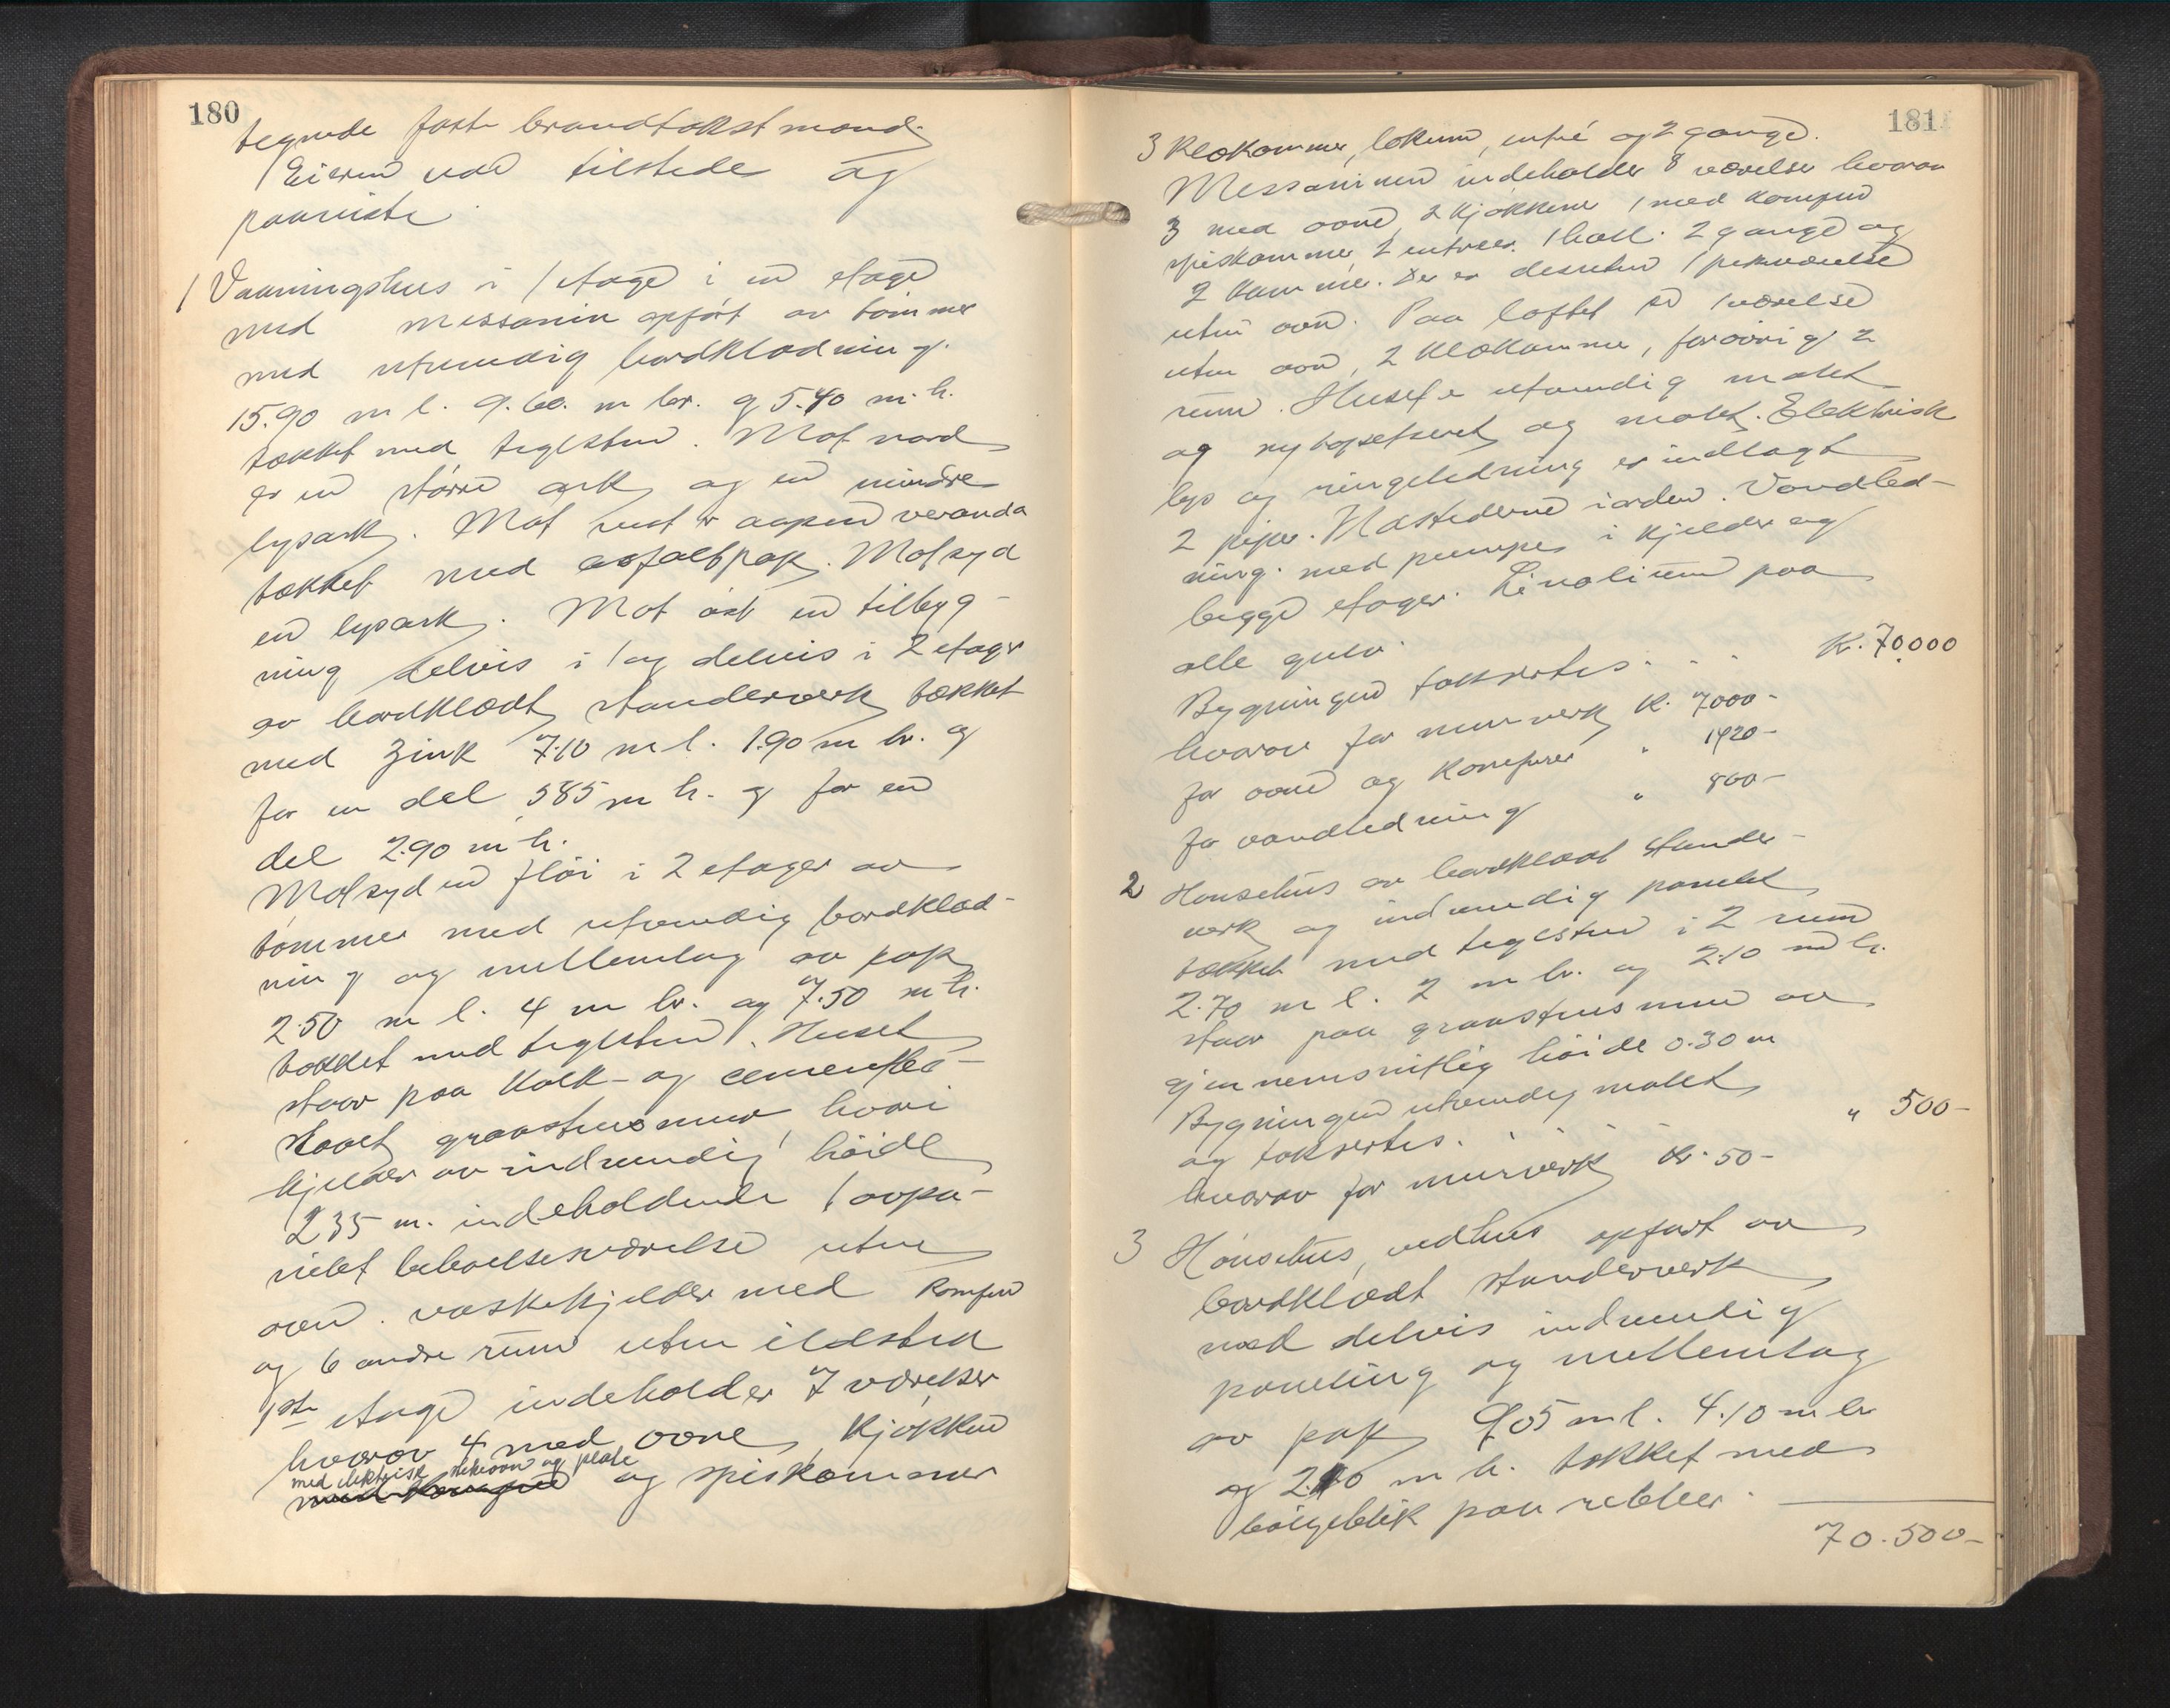 180
tegnede faste brandtakstmænd.
Eieren var tilstede og
paaviste
1 Vaaningshus i 1 etage i en etage
med messanin opført av tømmer
med utvendig bordklædning.
15.90 m l. 9.60. m br. og 5.40 m. h.
tækket med teglsten. Mot nord
er en større ark og en mindre
lysark. Mot vest er aapen veranda
tækket med asfaltpap. Mot syd
en lysark. Mot øst en tilbyg-
ning delvis i 1 og delvis i 2 etager
av bordklædt stenderverk tækket
med zink 7.10 m l. 1.90 m br. og
for en del 585 m h. og for en
del 2.90 m h.
Mot syd en fløi i 2 etager av
tømmer med utvendig bordklæd-
ning og mellemlag av pap
2.50 m l. 4 m br. og 7.50 m h.
tækket med teglsten. Huset
staar paa kalk- og cement
graastensmur, hvori
kjelder av indvendig høide
2.35 m. indeholdende 1 oppa-
nelet beboelsesværelse uten
ovn. vaskekjelder med komfur
og 6 andre rum uten ildsted
1ste etage indeholder 7 værelser
hvorav 4 med ovne, kjøkken
med elektrisk stekeovn og plate
med komfur og spiskammer
181
3 klækammer, lokum, entré og 2 gange.
Messaninen indeholder 8 værelser hvorav
3 med ovne, 2 kjøkkene 1 med komfur
spiskammer, 2 entreer. 1 hall. 2 gange og
2 kammer. Der er desuten 1 pikeværelse
uten ovn. Paa loftet er 1 værelse
uten ovn, 2 klækammer, forøvrig 2
rum. Huset er utvendig malet
og nytapetseret og malet. Elektrisk
lys og ringeledning er indlagt
2 piper. Ildstederne i orden. Vandled-
ning. med pumpe i kjelder og
begge etager. Linolium paa
alle gulv.
Bygningen taksertes . . . Kr. 70.000
hvorav for murverk Kr. 7000-
for ovne og komfurer " 1420-
for vandledning " 800-
2 Hønsehus av bordklædt stender-
verk og indvendig panelet
tækket med teglsten i 2 rum
2.70 m l. 2 m br. og 2.10 m h.
staar paa graastensmur av
gjennemsnitlig høide 0.30 m
Bygningen utvendig malet
og taksertes. . . . . " 500-
hvorav for murverk Kr. 50-
3 Hønsehus, vedhus opført av
bordklædt stenderverk
med delvis indvendig
paneling og mellemlag
av pap 905 m l. 4.10 m br
og m h. tækket med
bølgeblik paa
70.500-